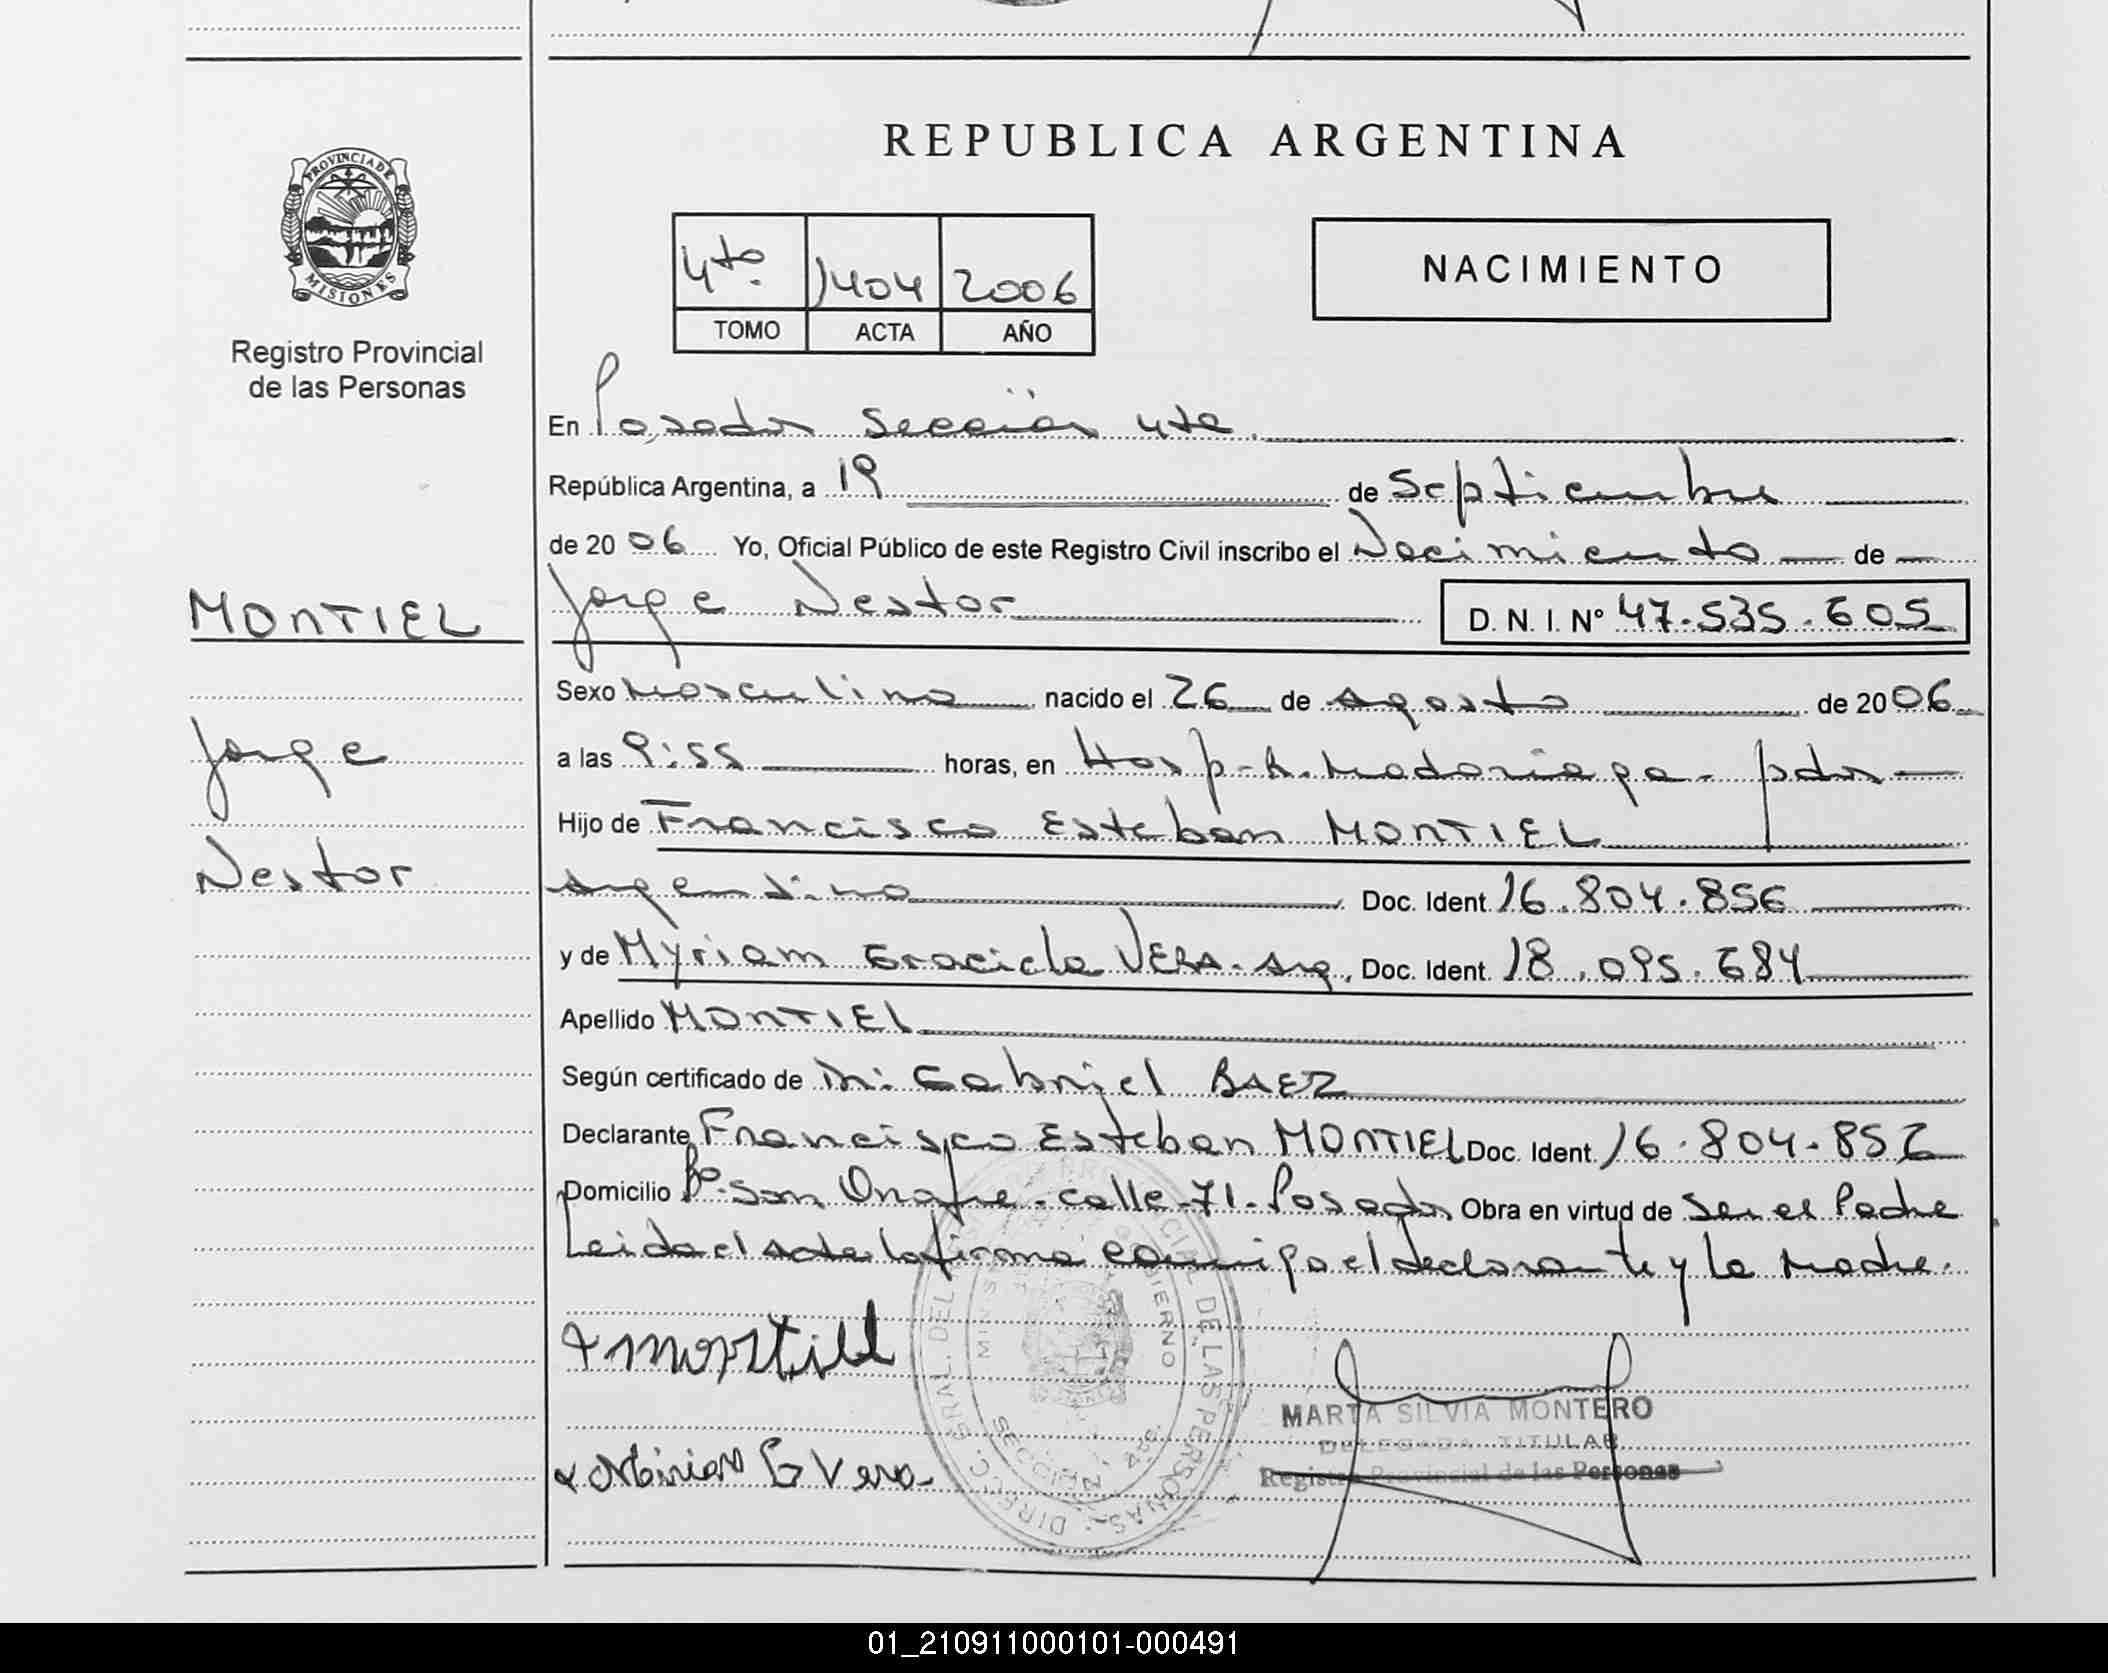 REPUBLICA ARGENTINA
PROVINCIA DE
MISIONES
Registro Provincial
de las Personas
4to. 1404 2006
TOMO ACTA AÑO
NACIMIENTO
En Posadas Sección 4ta.
República Argentina, a 19 de Septiembre
de 2006 Yo, Oficial Público de este Registro Civil inscribo el Nacimiento de
MONTIEL
Jorge Nestor D. N. I. Nº 47.535.605
Sexo Masculino nacido el 26 de Agosto de 2006
Jorge
a las 9:55 horas, en Hosp. R. Madariaga - pdas
Hijo de Francisco Esteban MONTIEL
Nestor
Argentino Doc. Ident. 16.804.856
y de Myriam Graciela VERA. Arg. Doc. Ident. 18.095.684
Apellido MONTIEL
Según certificado de Dr. Gabriel BAEZ
Declarante Francisco Esteban MONTIEL Doc. Ident. 16.804.856
Domicilio Bº. San Onofre - calle - 71 - Posadas Obra en virtud de Ser el Padre
Leida el acta la firma conmigo el declarante y la Madre.
DIRECC. GRAL. DEL REGISTRO PROVINCIAL DE LAS PERSONAS
GOBIERNO
SECCIÓN 4ta.
MARTA SILVIA MONTERO
DELEGADA TITULAR
Registro Provincial de las Personas
G Vera
01_210911000101-000491